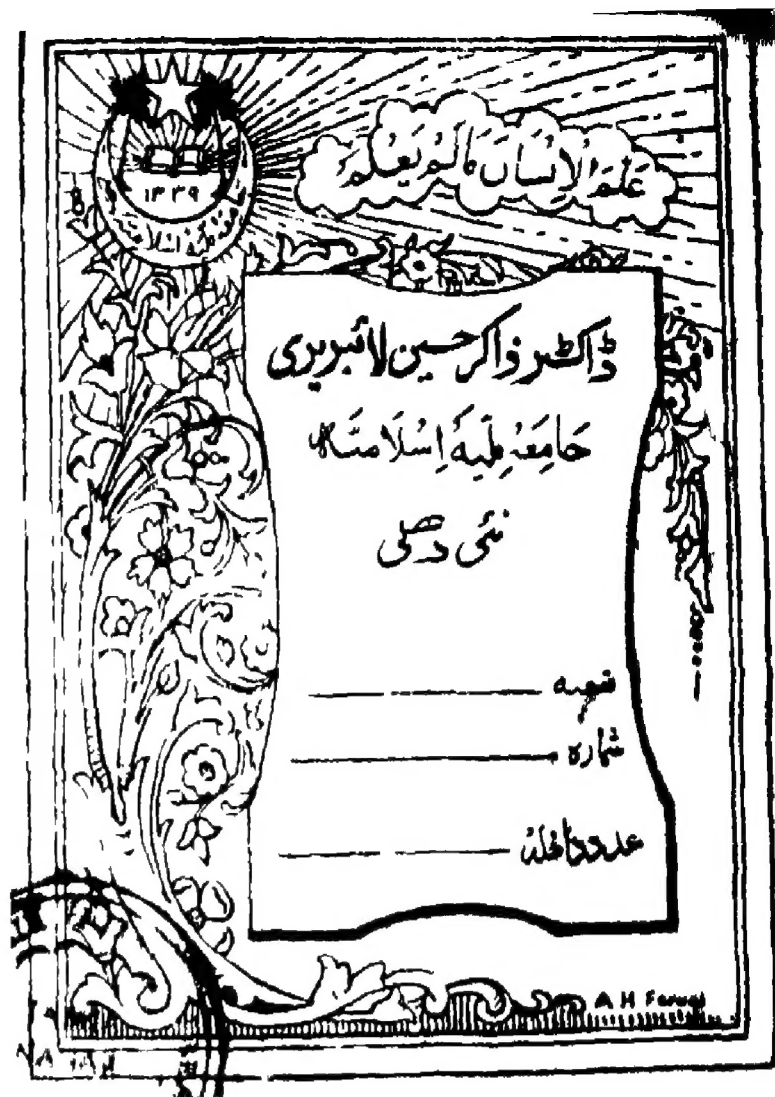 عَلَّمَ الْاِنْسَانَ مَالَمْ يَعْلَمْ
۱۳۳۹
ڈاکٹر ذاکر حسین لائبریری
جَامِعَہ مِلّیَہ اِسْلَامیَہ
نئی دھلی
شمارہ
عدد داخلہ
A H Faruqi